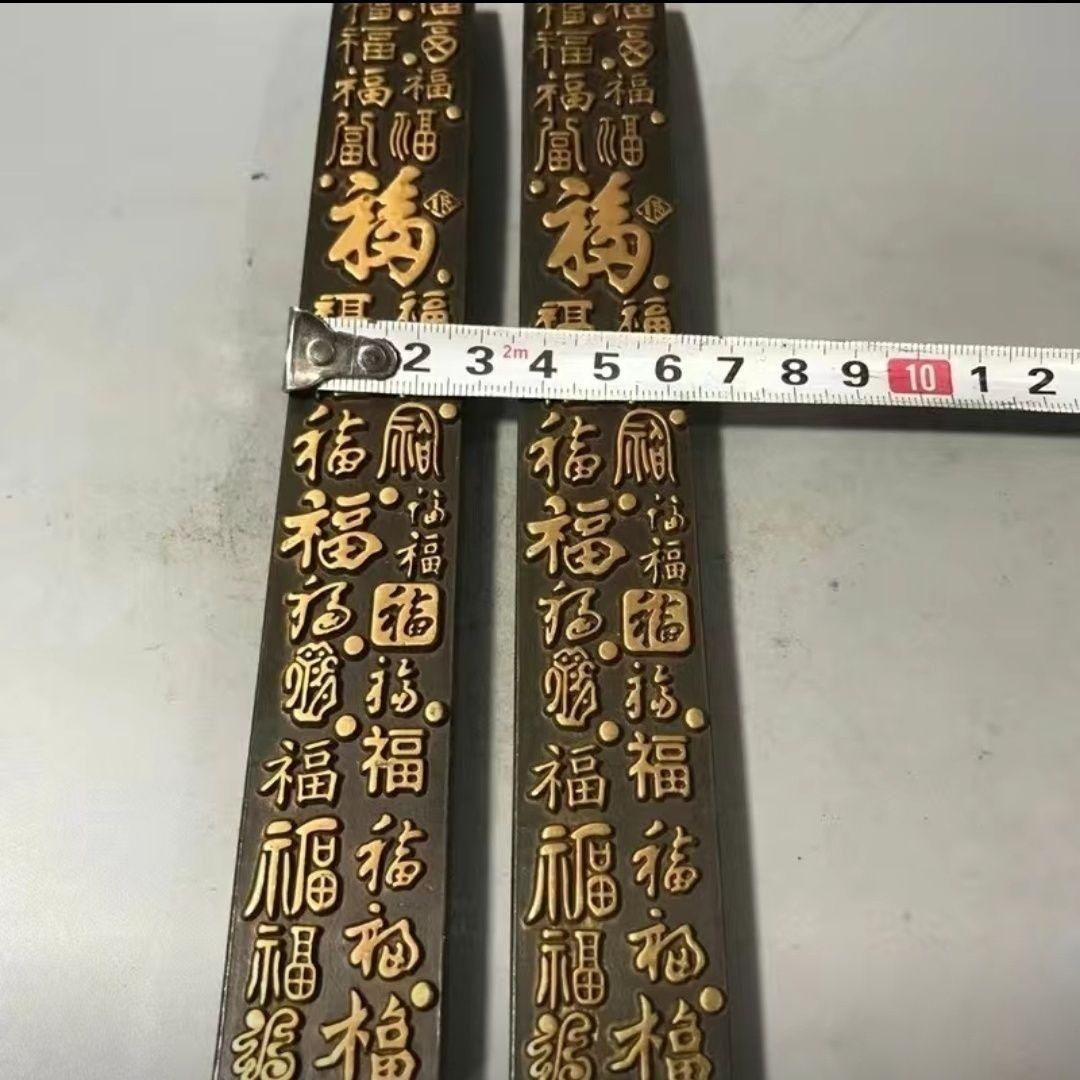 福 福 福 福
福 福 福 福
福 福 福 福
福 福 福 福
福 福
福 福 福 福
2 3 2m 4 5 6 7 8 9 10 1 2
福 福 福 福
福 福 福 福
福 福
福 福 福 福
福 福 福 福
福 福 福 福
福 福 福 福
福 福 福 福
福 福 福 福